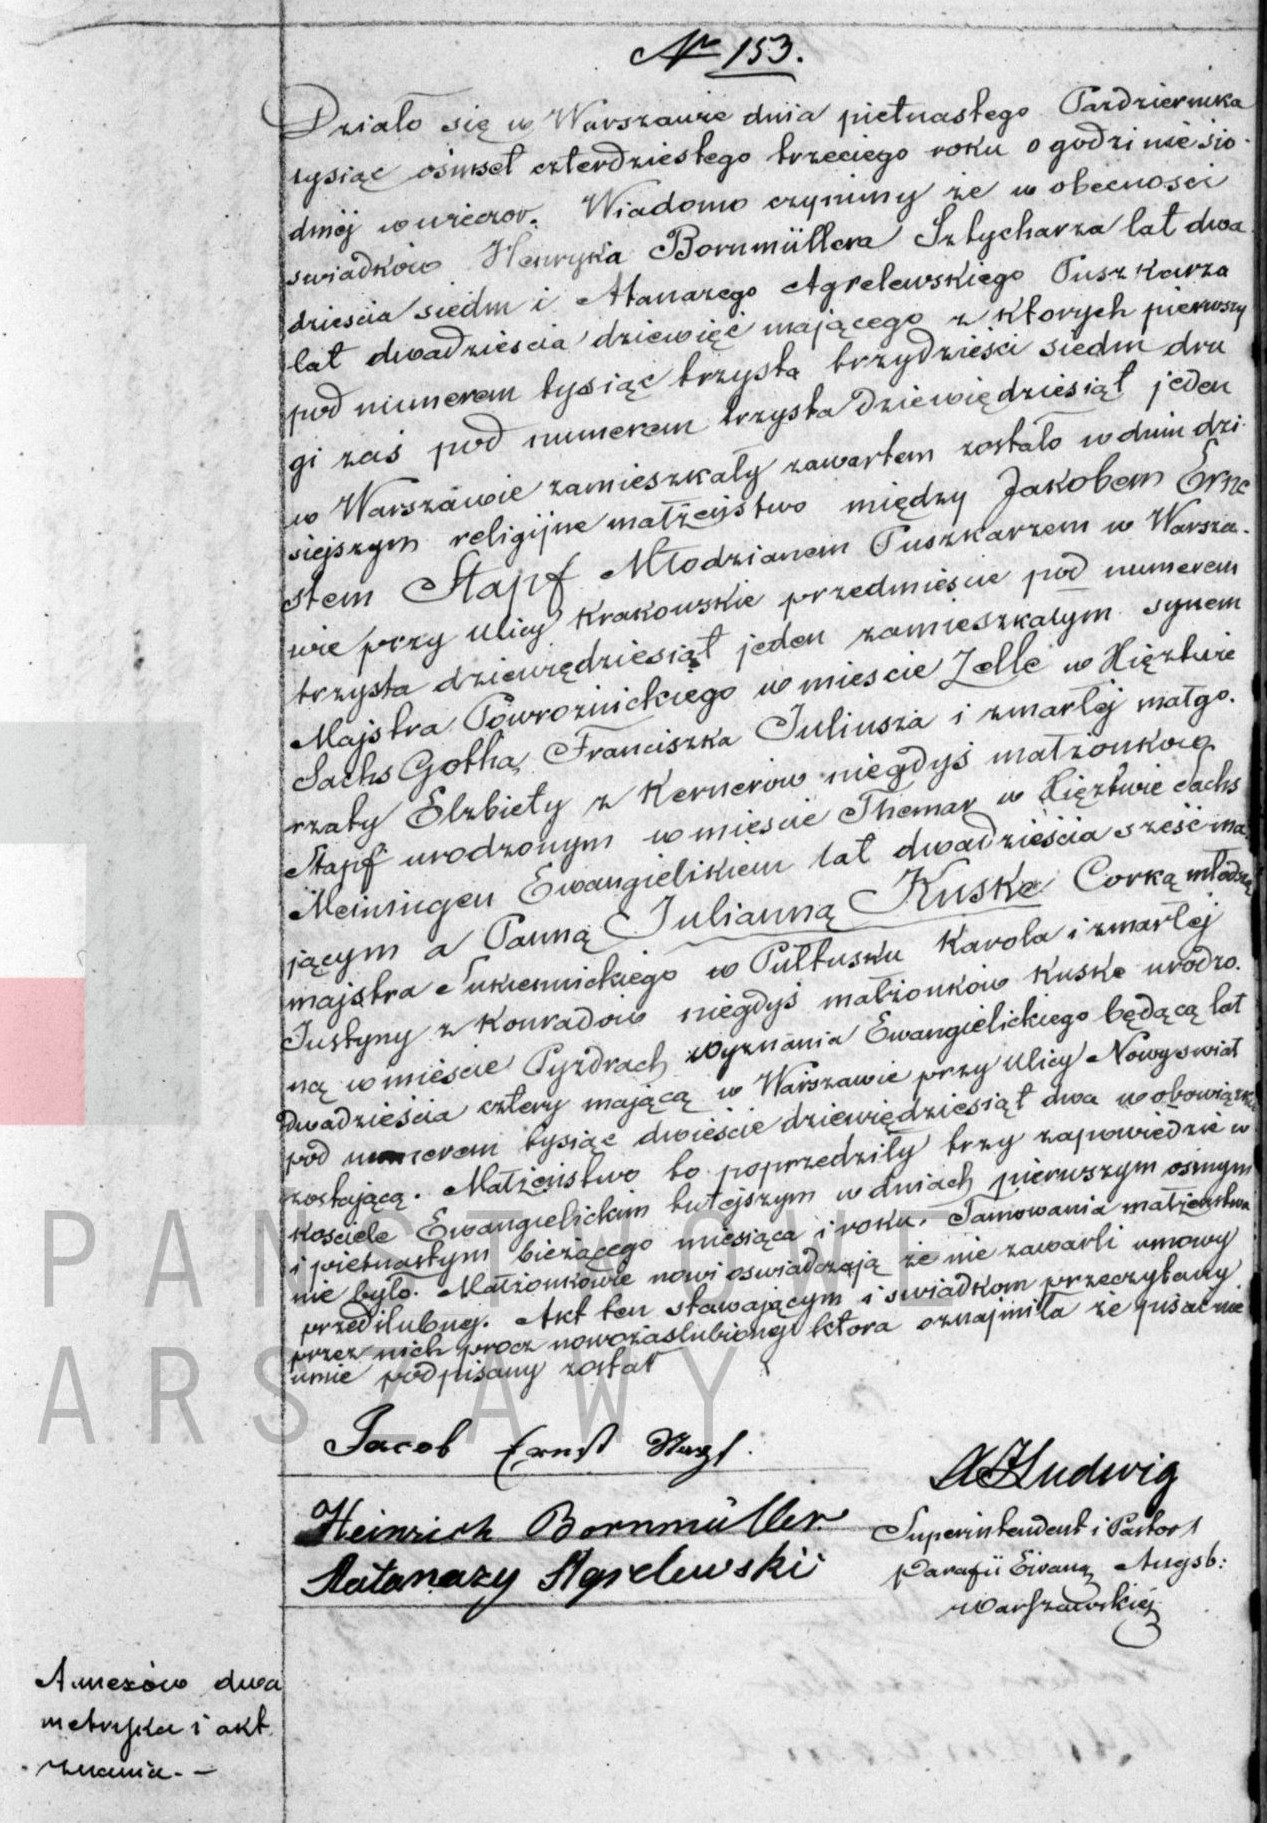 № 153.
Działo się w Warszawie dnia piętnastego Pazdziernika
tysiąc ośmset czterdziestego trzeciego roku o godzinie sio-
dmój wwieczor. Wiadomo czynimy że w obecnosci
swiadków Henryka Bornmüllera Sztycharza lat dwa
dzieścia siedm i Atanazego Agrelewskiego Puszkarza
lat dwadzieścia dziewięć mającego z których pierwszy
pod numerem tysiąc trzysta trzydzieści siedm dru
gi zaś pod numerem trzysta dziewiędziesiąt jeden
w Warszawie zamieszkały zawartem zostało w dniu dzi-
siejszym religijne małżeństwo między Jakobem Erne
stem Stapf Młodzianem Puszkarzem w Warsza-
wie przy ulicy Krakowskie przedmieście pod numerem
trzysta dziewiędziesiąt jeden zamieszkałym synem
Majstra Powroznickiego w miescie Zelle w Xięztwie
Sachs Gotha, Franciszka Juliusza i zmarłej małgo-
rzaty Elzbiety z Kernerów niegdyś małżonków
Stapf urodzonym w mieście Themar w Xięztwie Sachs
Meiningen Ewangielikiem lat dwadzieścia sześć ma
jącym a Panną Julianną Kuske Corką młodszą
majstra Sukiennickiego w Pułtusku Karola i zmarłej
Justyny z Konradów niegdyś małżonków Kuske urodzo-
ną w mieście Pyzdrach wyznania Ewangielickiego będącą lat
dwadzieścia cztery mającą w Warszawie przy ulicy Nowyswiat
pod numerem tysiąc dwieście dziewiędziesiąt dwa w obowiązku
zostającą. Małżeństwo to poprzedziły trzy zapowiedzie w
kosciele Ewangielickim tutejszym w dniach pierwszym osmym
i piętnastym bieżącego miesiąca i roku. Tamowania małżeństwa
nie było. Małżonkowie nowi oswiadczają że nie zawarli umowy
przedślubnej. Akt ten stawającym i swiadkom przeczytany
przez nich procz nowozaslubionej ktora oznajmiła że pisac nie
umie podpisany został
Jacob Ernst Stapf.
Heinrich Bornmüller
Aatanazy Agrelewski
Ludwig
Superintendent i Pastor
parafii Ewang Augsb:
Warszawskiej
Annexów dwa
metryka i akt
znania. –
PAŃSTWOWE
ARSZAWY